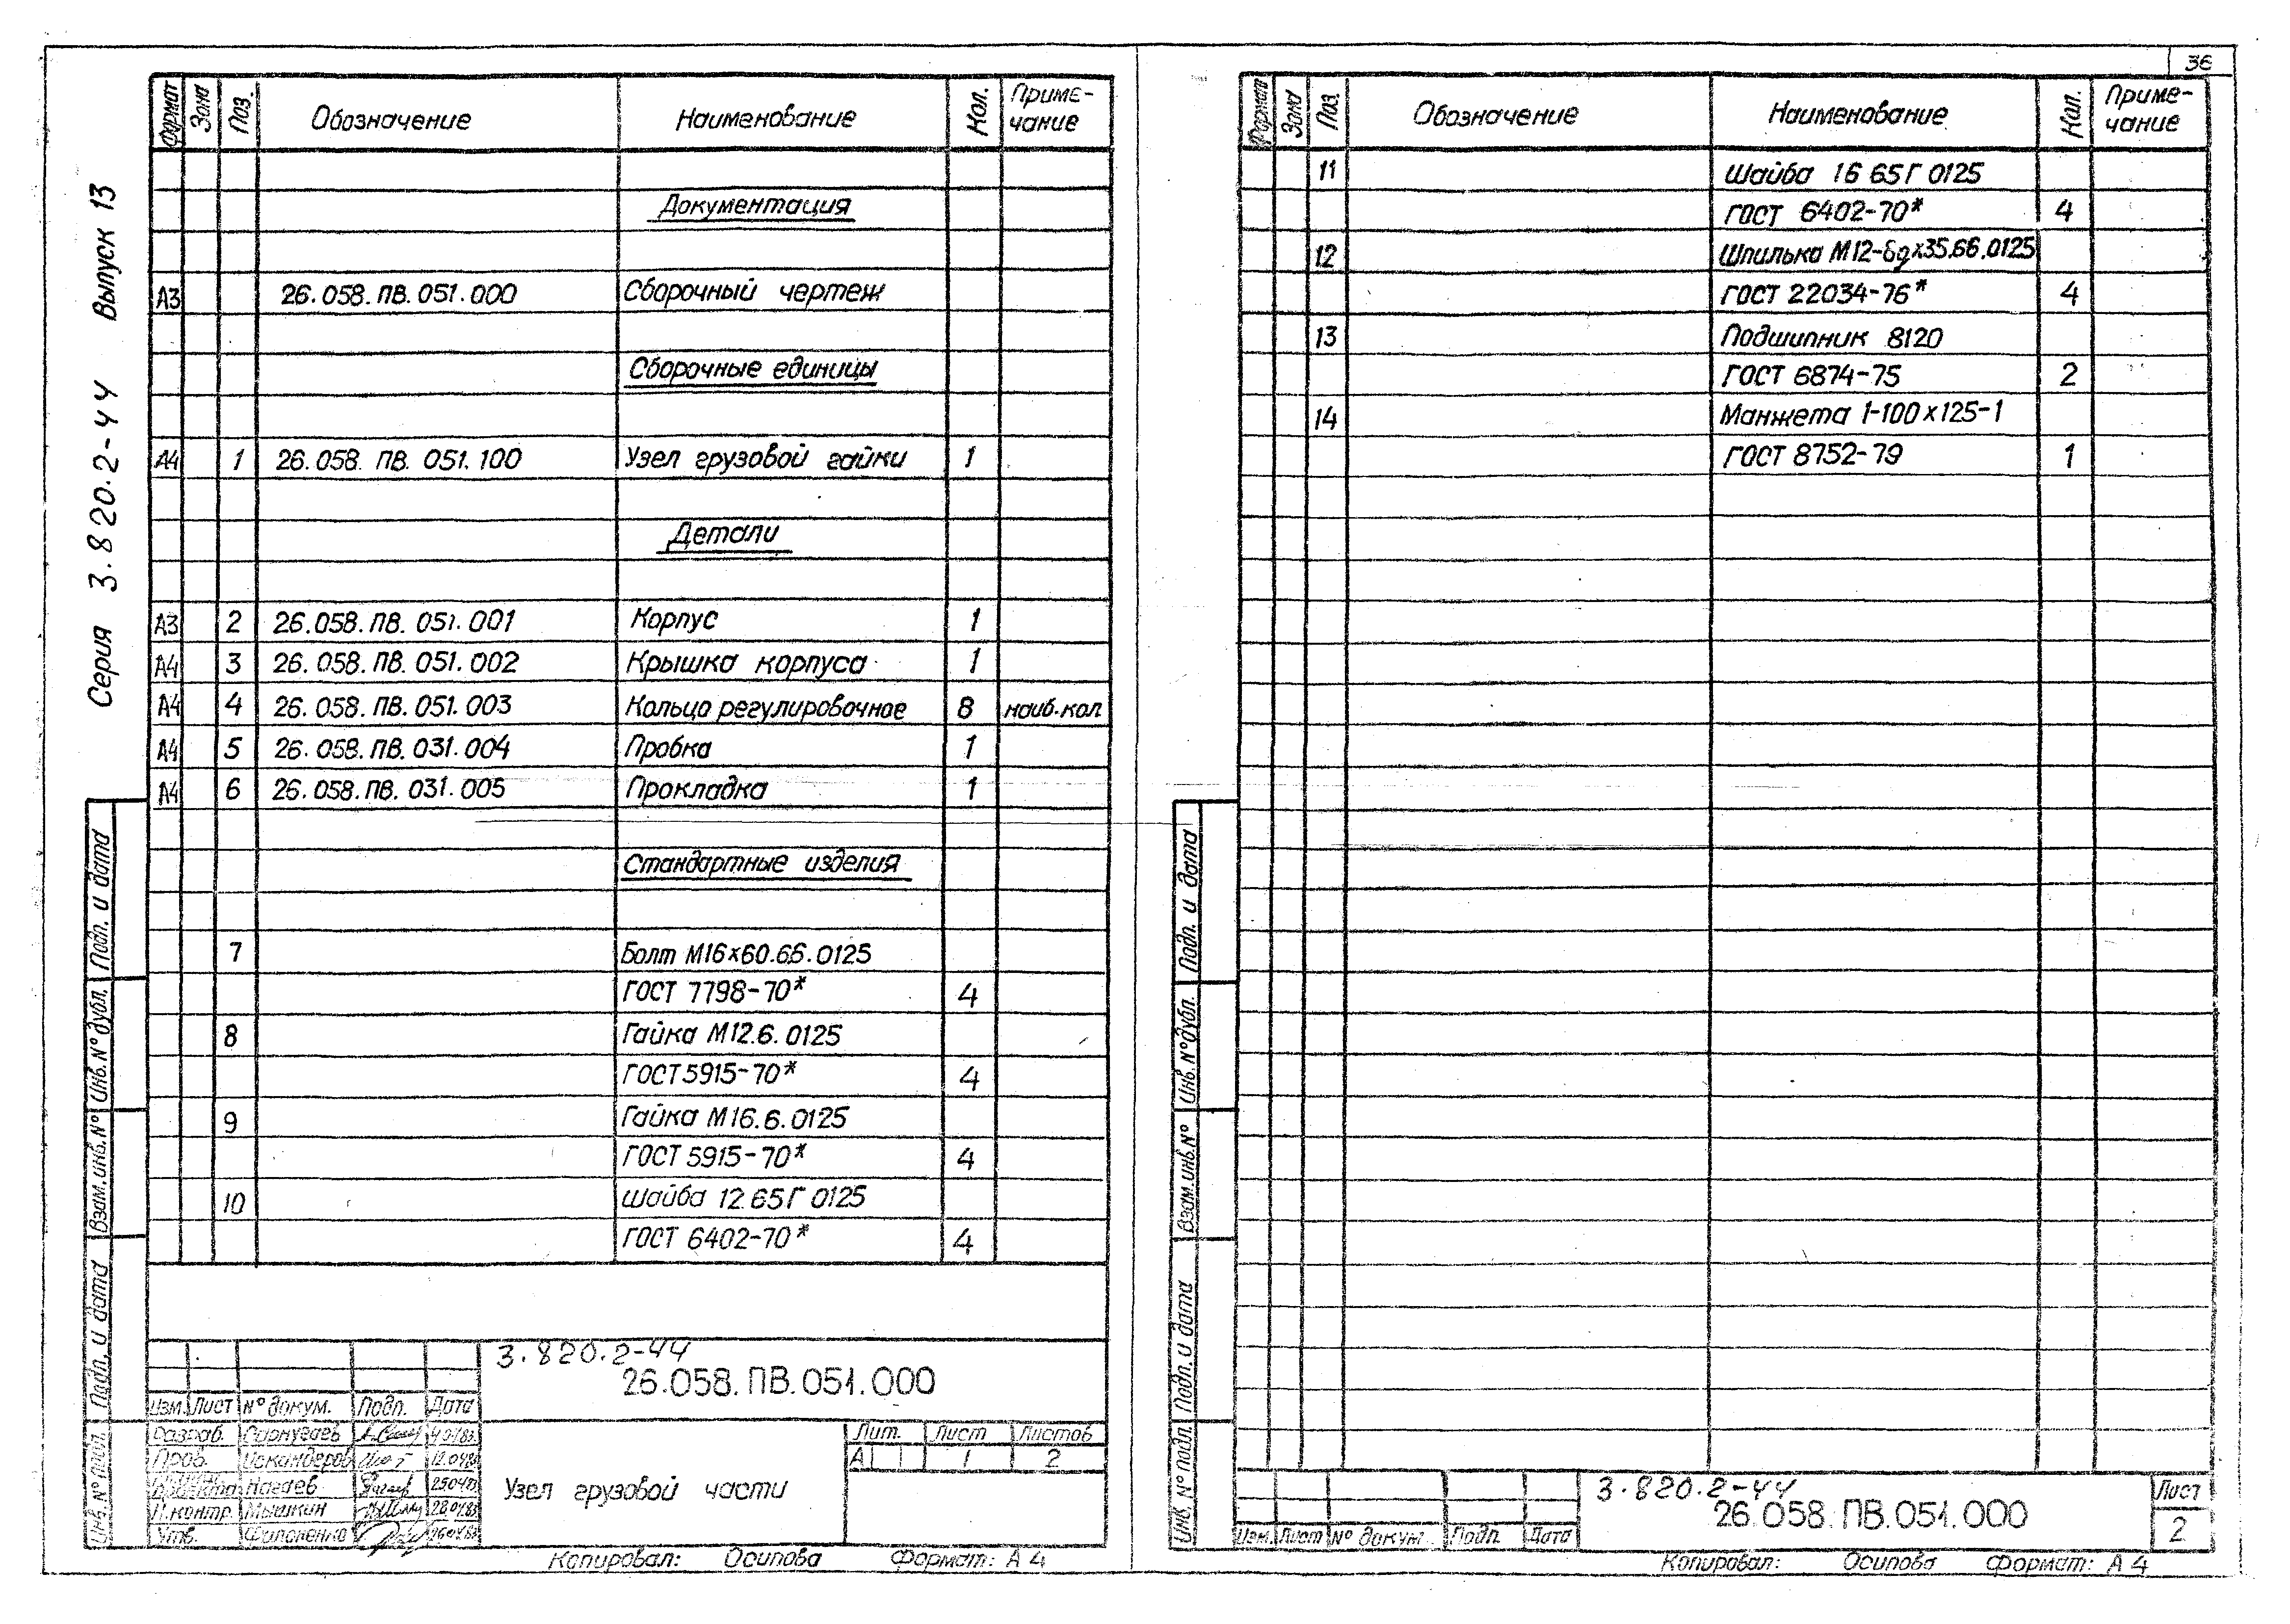 36
Серия 3.820.2-44 Выпуск 13
Формат Зона Поз. Обозначение Наименование Кол. Приме-
чание
Документация
А3 26.058.ПВ.051.000 Сборочный чертеж
Сборочные единицы
А4 1 26.058.ПВ.051.100 Узел грузовой гайки 1
Детали
А3 2 26.058.ПВ.051.001 Корпус 1
А4 3 26.058.ПВ.051.002 Крышка корпуса 1
А4 4 26.058.ПВ.051.003 Кольцо регулировочное 8 наиб.кол
А4 5 26.058.ПВ.031.004 Пробка 1
А4 6 26.058.ПВ.031.005 Прокладка 1
Стандартные изделия
7 Болт М16х60.66.0125
ГОСТ 7798-70* 4
8 Гайка М12.6.0125
ГОСТ 5915-70* 4
9 Гайка М16.6.0125
ГОСТ 5915-70* 4
10 Шайба 12.65Г 0125
ГОСТ 6402-70* 4
Подп. и дата
Инв.№ дубл.
Взам.инв.№
Подп. и дата
Инв.№ подл.
3.820.2-44
26.058.ПВ.051.000
Изм. Лист № докум. Подп. Дата
Разраб. Сарнугаев
Пров. Искандеров
Нагаев
Н.контр. Мышкин
Утв. Филоненко
Узел грузовой части
Лит. Лист Листов
А 1 2
Копировал: Осипова Формат: А4
Формат Зона Поз. Обозначение Наименование Кол. Приме-
чание
11 Шайба 16 65Г 0125
ГОСТ 6402-70* 4
12 Шпилька М12-6gх35.66.0125
ГОСТ 22034-76* 4
13 Подшипник 8120
ГОСТ 6874-75 2
14 Манжета 1-100х125-1
ГОСТ 8752-79 1
Подп. и дата
Инв.№ дубл.
Взам.инв.№
Подп. и дата
Инв.№ подл.
3.820.2-44
26.058.ПВ.051.000
Изм. Лист № докум. Подп. Дата
Лист
2
Копировал: Осипова Формат: А4